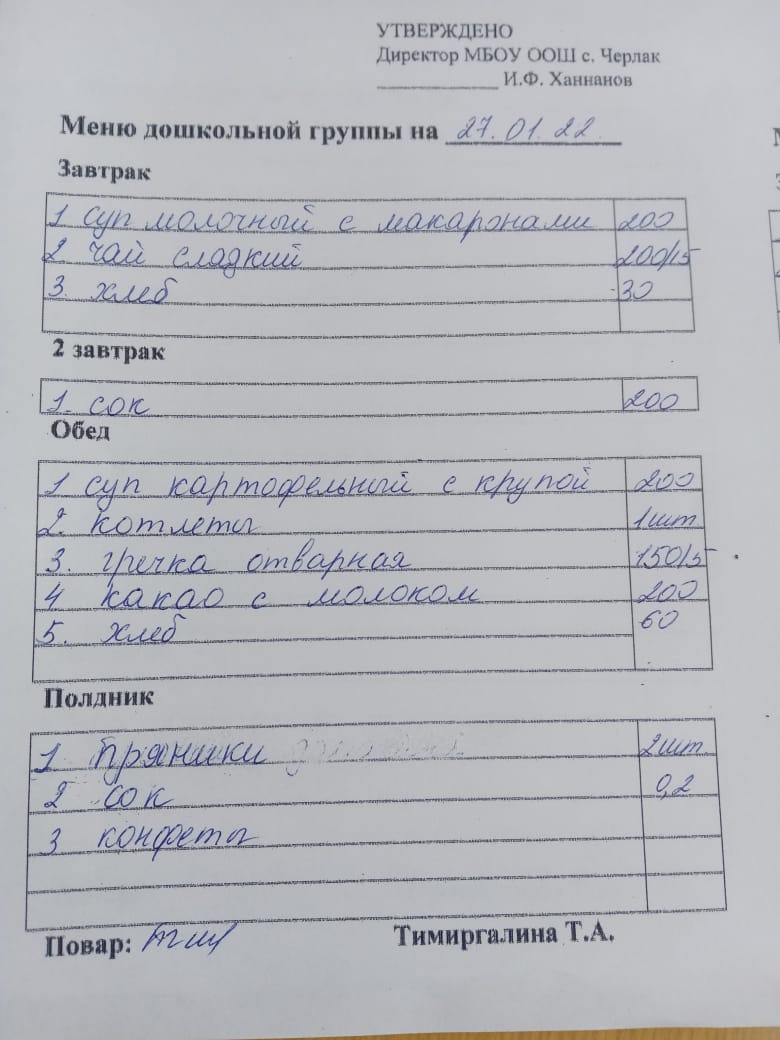 УТВЕРЖДЕНО
Директор МБОУ ООШ с. Черлак
____________ И.Ф. Ханнанов
Меню дошкольной группы на 27.01.22
Завтрак
1 суп молочный с макаронами 200
2 чай сладкий 200/15
3. хлеб 30
2 завтрак
1. сок 200
Обед
1 суп картофельный с крупой 200
2. котлеты 1 шт
3. гречка отварная 150/5
4 какао с молоком 200
5. хлеб 60
Полдник
1 пряники 2 шт.
2 сок 0,2
3 конфеты
Повар: Тимиргалина Т.А.